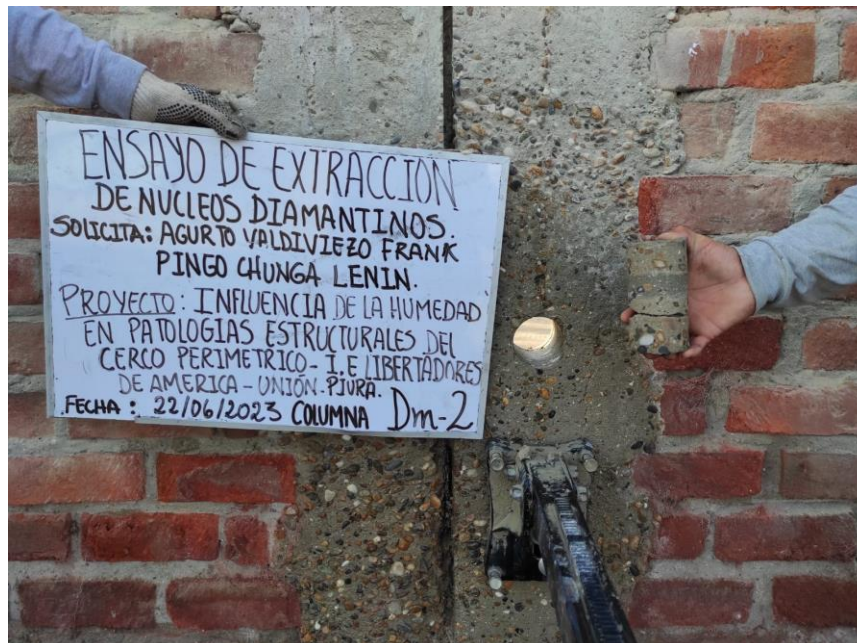 ENSAYO DE EXTRACCION
DE NUCLEOS DIAMANTINOS.
SOLICITA: AGURTO VALDIVIEZO FRANK
PINGO CHUNGA LENIN.
PROYECTO: INFLUENCIA DE LA HUMEDAD
EN PATOLOGIAS ESTRUCTURALES DEL
CERCO PERIMETRICO - I.E LIBERTADORES
DE AMERICA - UNIÓN - PIURA.
FECHA: 22/06/2023 COLUMNA Dm-2